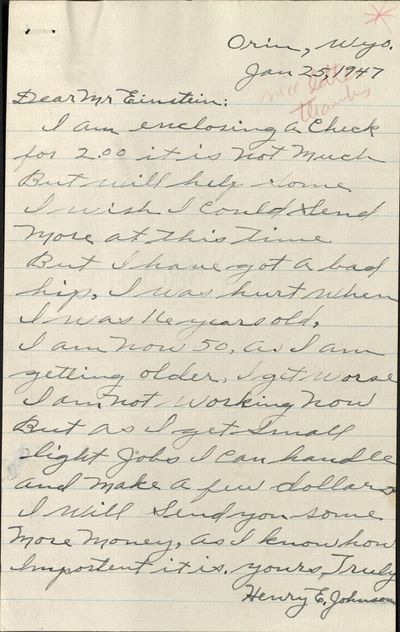 Orin, Wyo.
Jan 25, 1947
nice letter
thanks
Dear Mr Einstein:
I am enclosing a Check
for 2.00 it is not much
But will help some
I wish I could send
more at this time
But I have got a bad
hip, I was hurt when
I was 16 years old,
I am now 50, as I am
getting older, I get worse
I am not working now
But as I get small
light jobs I can handle
and make a few dollars
I will send you some
more money, as I know how
Importent it is, yours, Truly
Henry E. Johnson